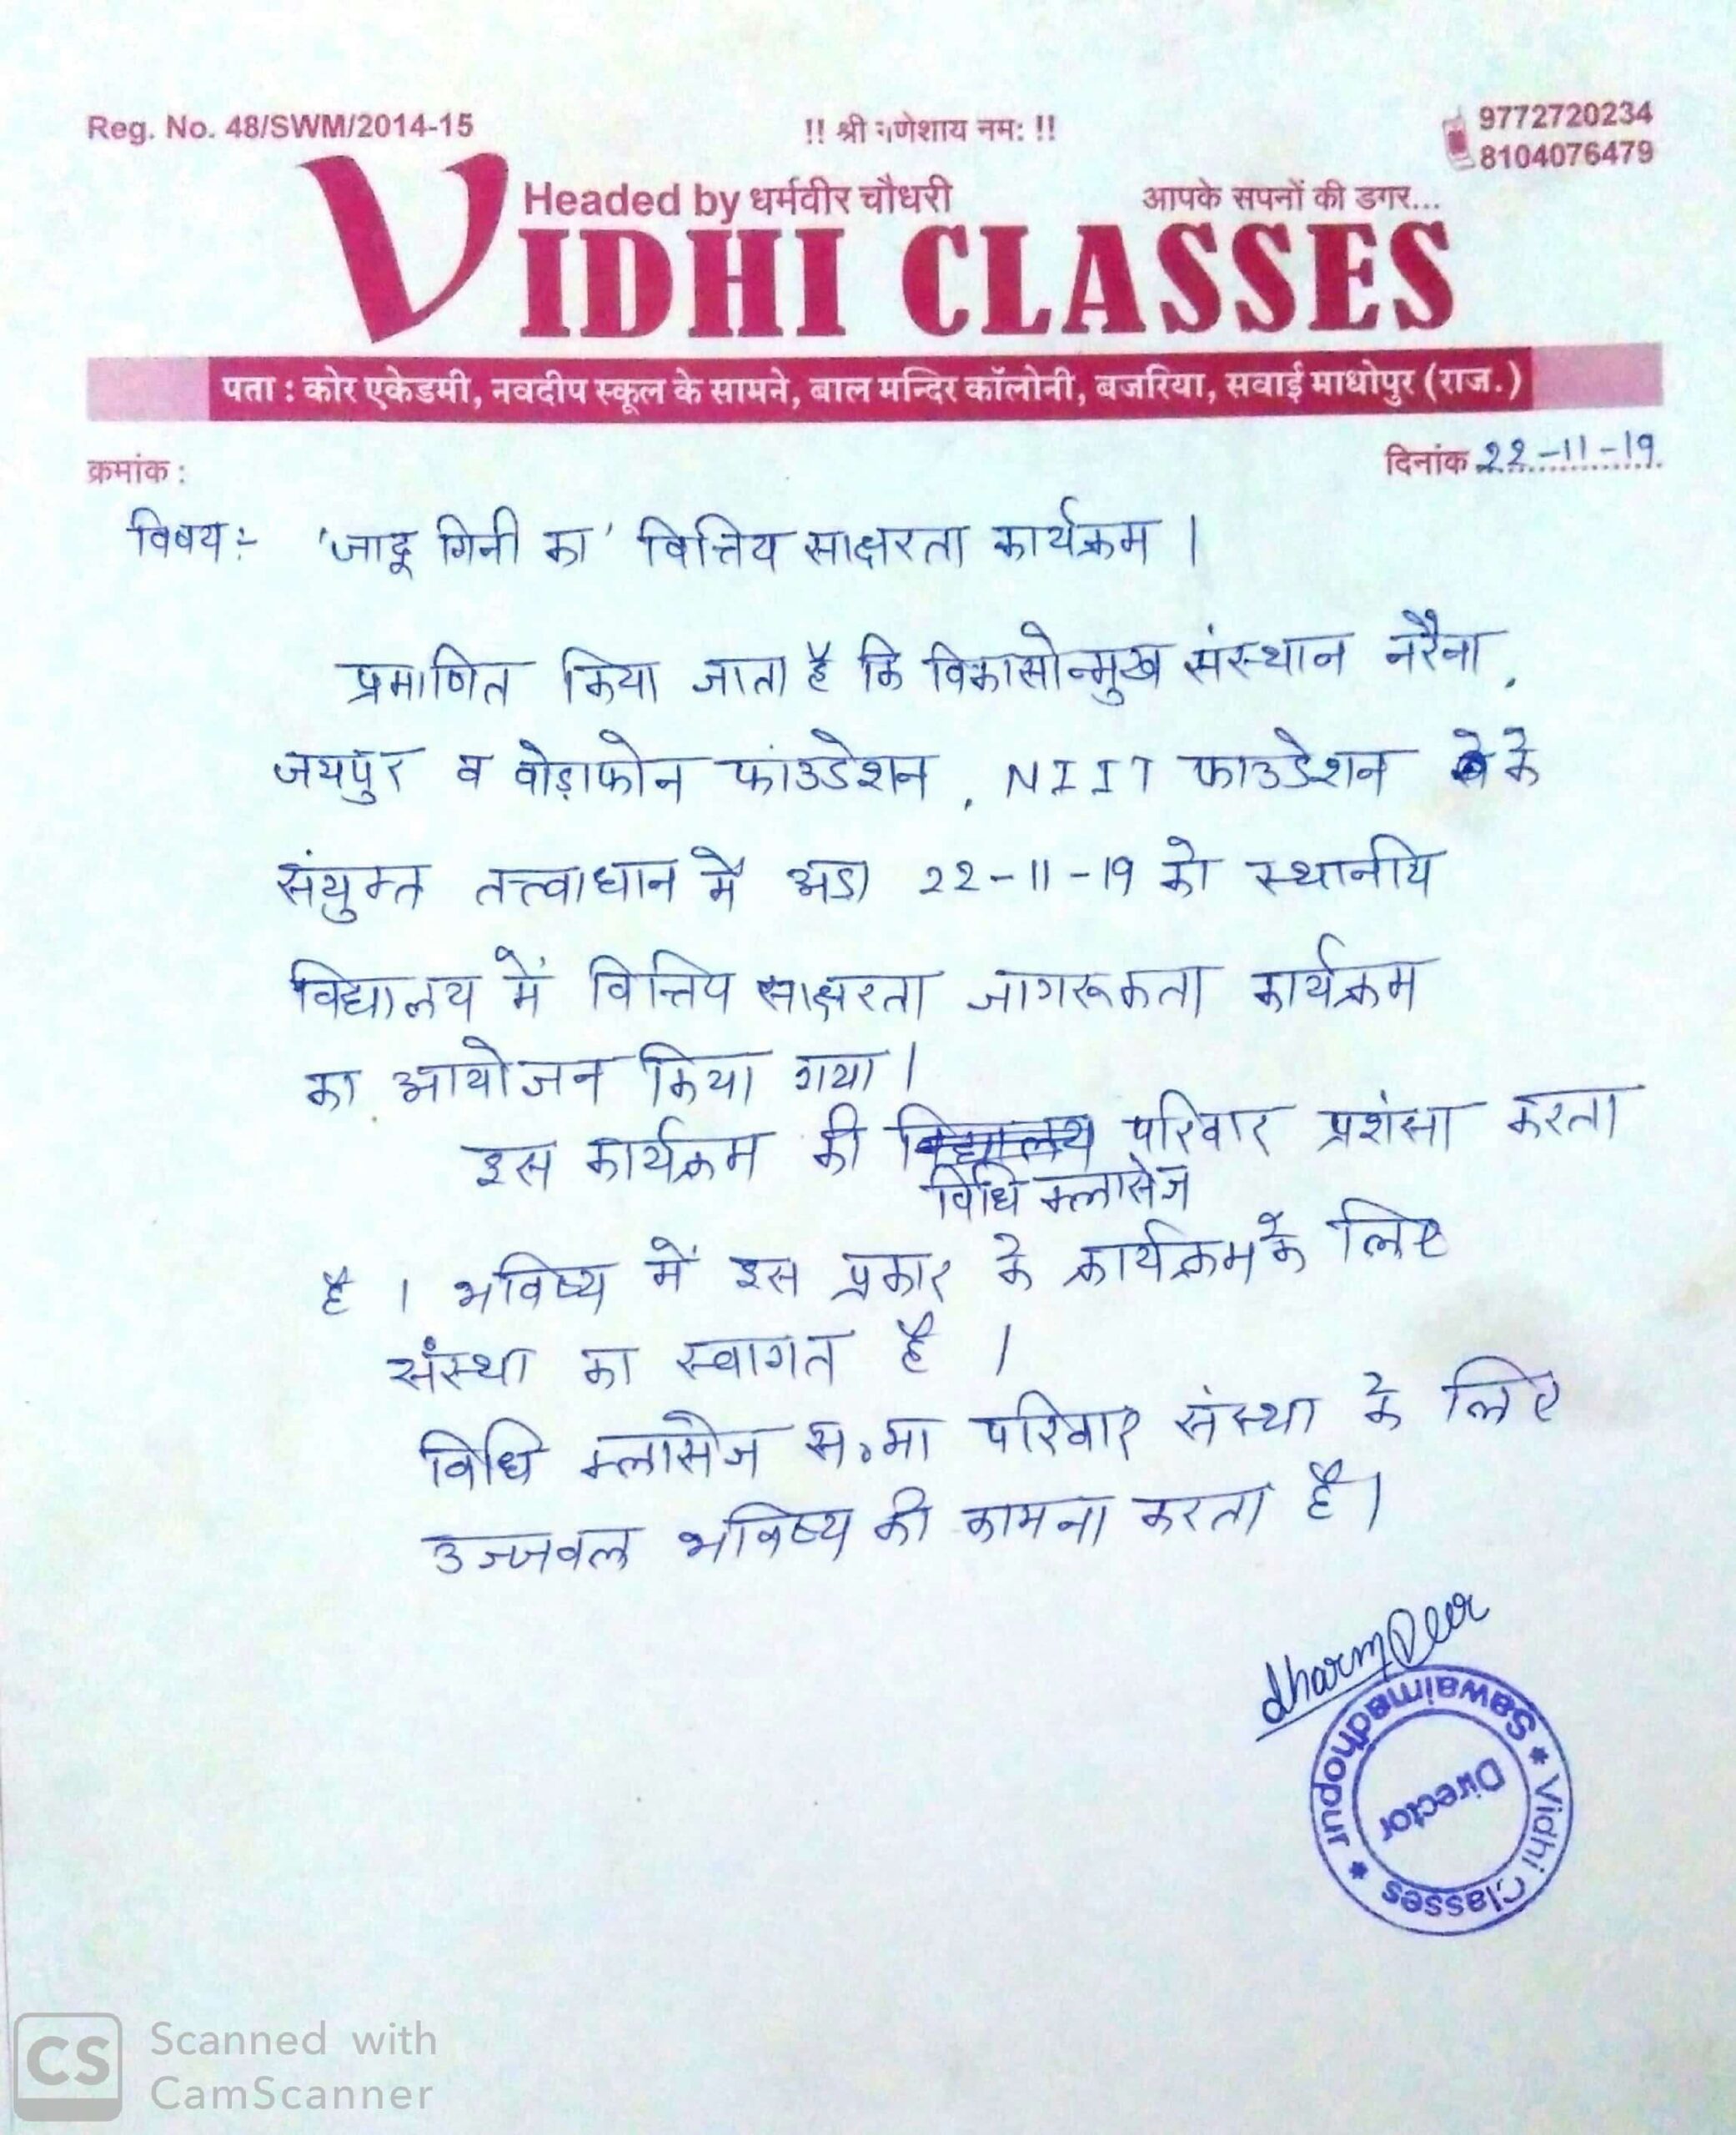 Reg. No. 48/SWM/2014-15
!! श्री गणेशाय नम: !!
9772720234
8104076479
Headed by धर्मवीर चौधरी
आपके सपनों की डगर...
VIDHI CLASSES
पता : कोर एकेडमी, नवदीप स्कूल के सामने, बाल मन्दिर कॉलोनी, बजरिया, सवाई माधोपुर (राज.)
क्रमांक :
दिनांक 22-11-19
विषय:- 'जादू गिनी का' वित्तिय साक्षरता कार्यक्रम ।
प्रमाणित किया जाता है कि विकासोन्मुख संस्थान नरैना,
जयपुर व वोड़ाफोन फांउडेशन, NIIT फाउडेशन के
संयुक्त तत्त्वाधान में आज 22-11-19 को स्थानीय
विद्यालय में वित्तिय साक्षरता जागरूकता कार्यक्रम
का आयोजन किया गया।
इस कार्यक्रम की विद्यालय परिवार प्रशंसा करता
विधि क्लासेज
है । भविष्य में इस प्रकार के कार्यक्रम के लिए
संस्था का स्वागत है ।
विधि क्लासेज स.मा परिवार संस्था के लिए
उज्जवल भविष्य की कामना करता है।
dharmveer
Vidhi Classes * Sawaimadhopur *
Director
CS Scanned with
CamScanner